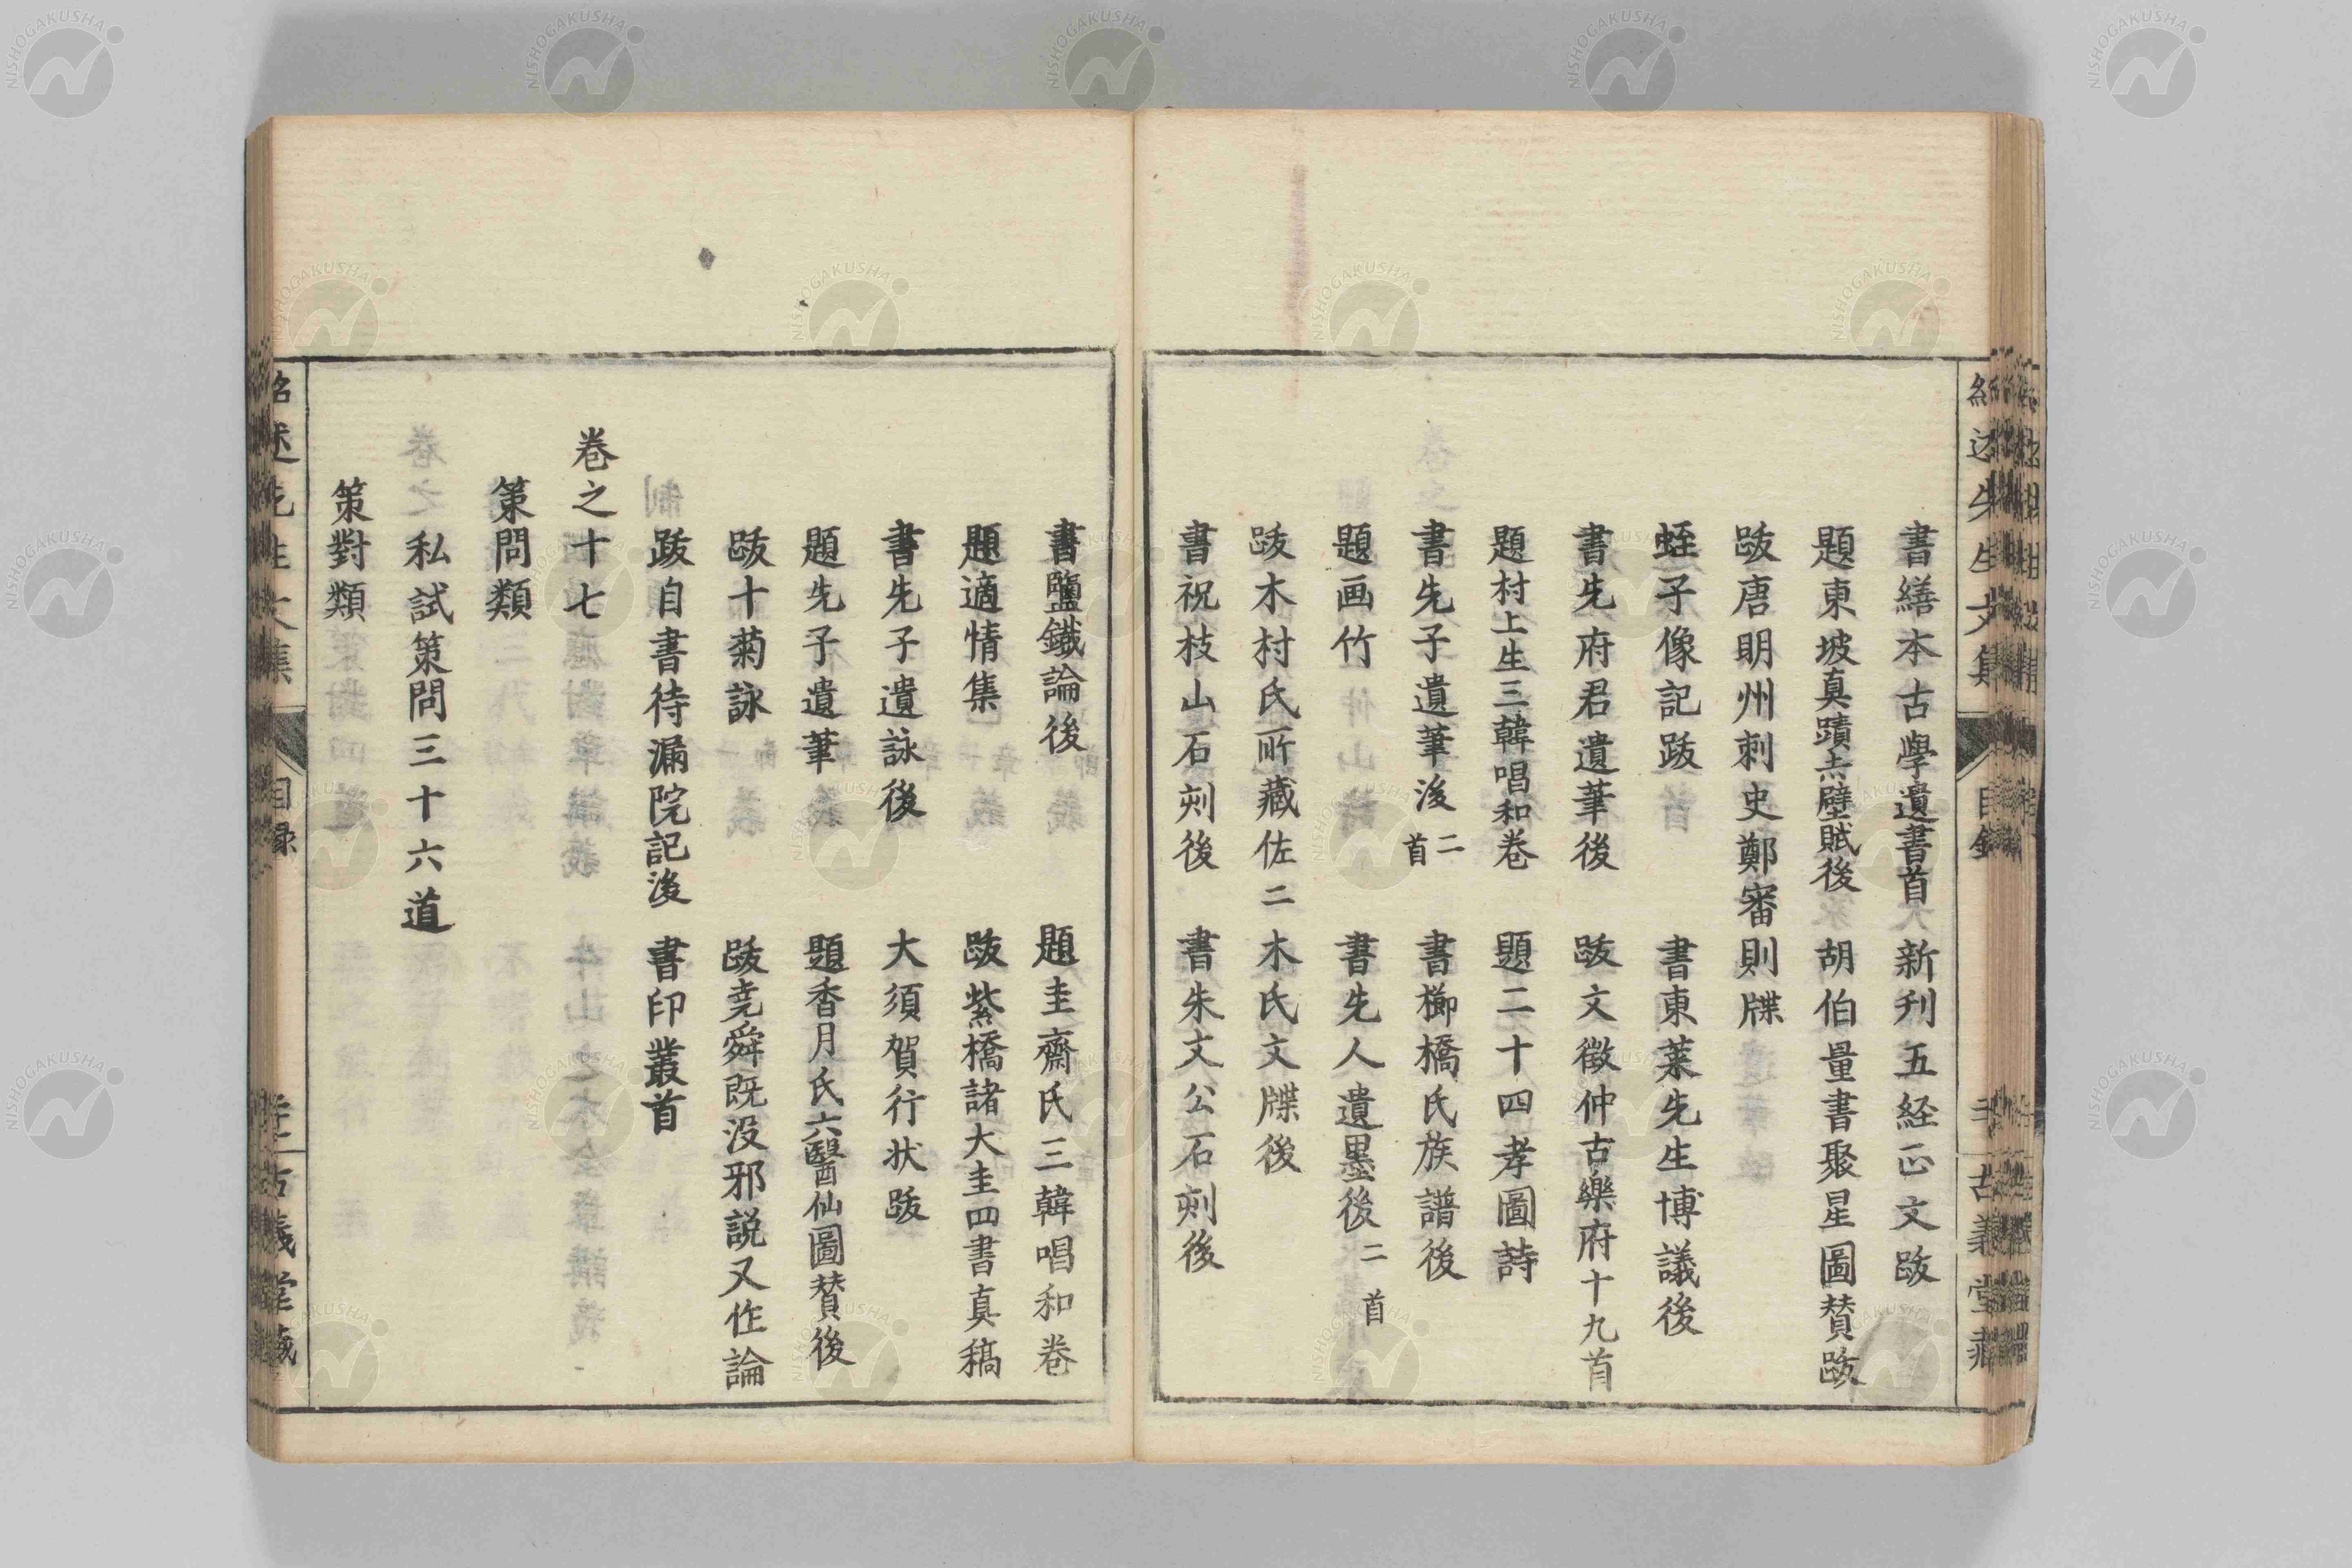 書繕本古學遺書首　新刊五経正文跋
題東坡真蹟赤壁賦後　胡伯量書聚星圖賛跋
跋唐明州刺史鄭審則牒
蛭子像記跋　書東莱先生博議後
書先府君遺筆後　跋文徵仲古樂府十九首
題村上生三韓唱和巻　題二十四孝圖詩
書先子遺筆後二首　書櫛橋氏族譜後
題画竹　書先人遺墨後二首
跋木村氏所藏佐二木氏文牒後
書祝枝山石刻後　書朱文公石刻後
書鹽鐵論後　題圭齋氏三韓唱和巻
題適情集　跋紫橋諸大圭四書真稿
書先子遺詠後　大須賀行状跋
題先子遺筆　題香月氏六醫仙圖賛後
跋十菊詠　跋尭舜既没邪説又作論
跋自書待漏院記後　書印叢首
巻之十七
策問類
私試策問三十六道
策對類
紹述先生文集　目録　古義堂藏
NISHOGAKUSHA